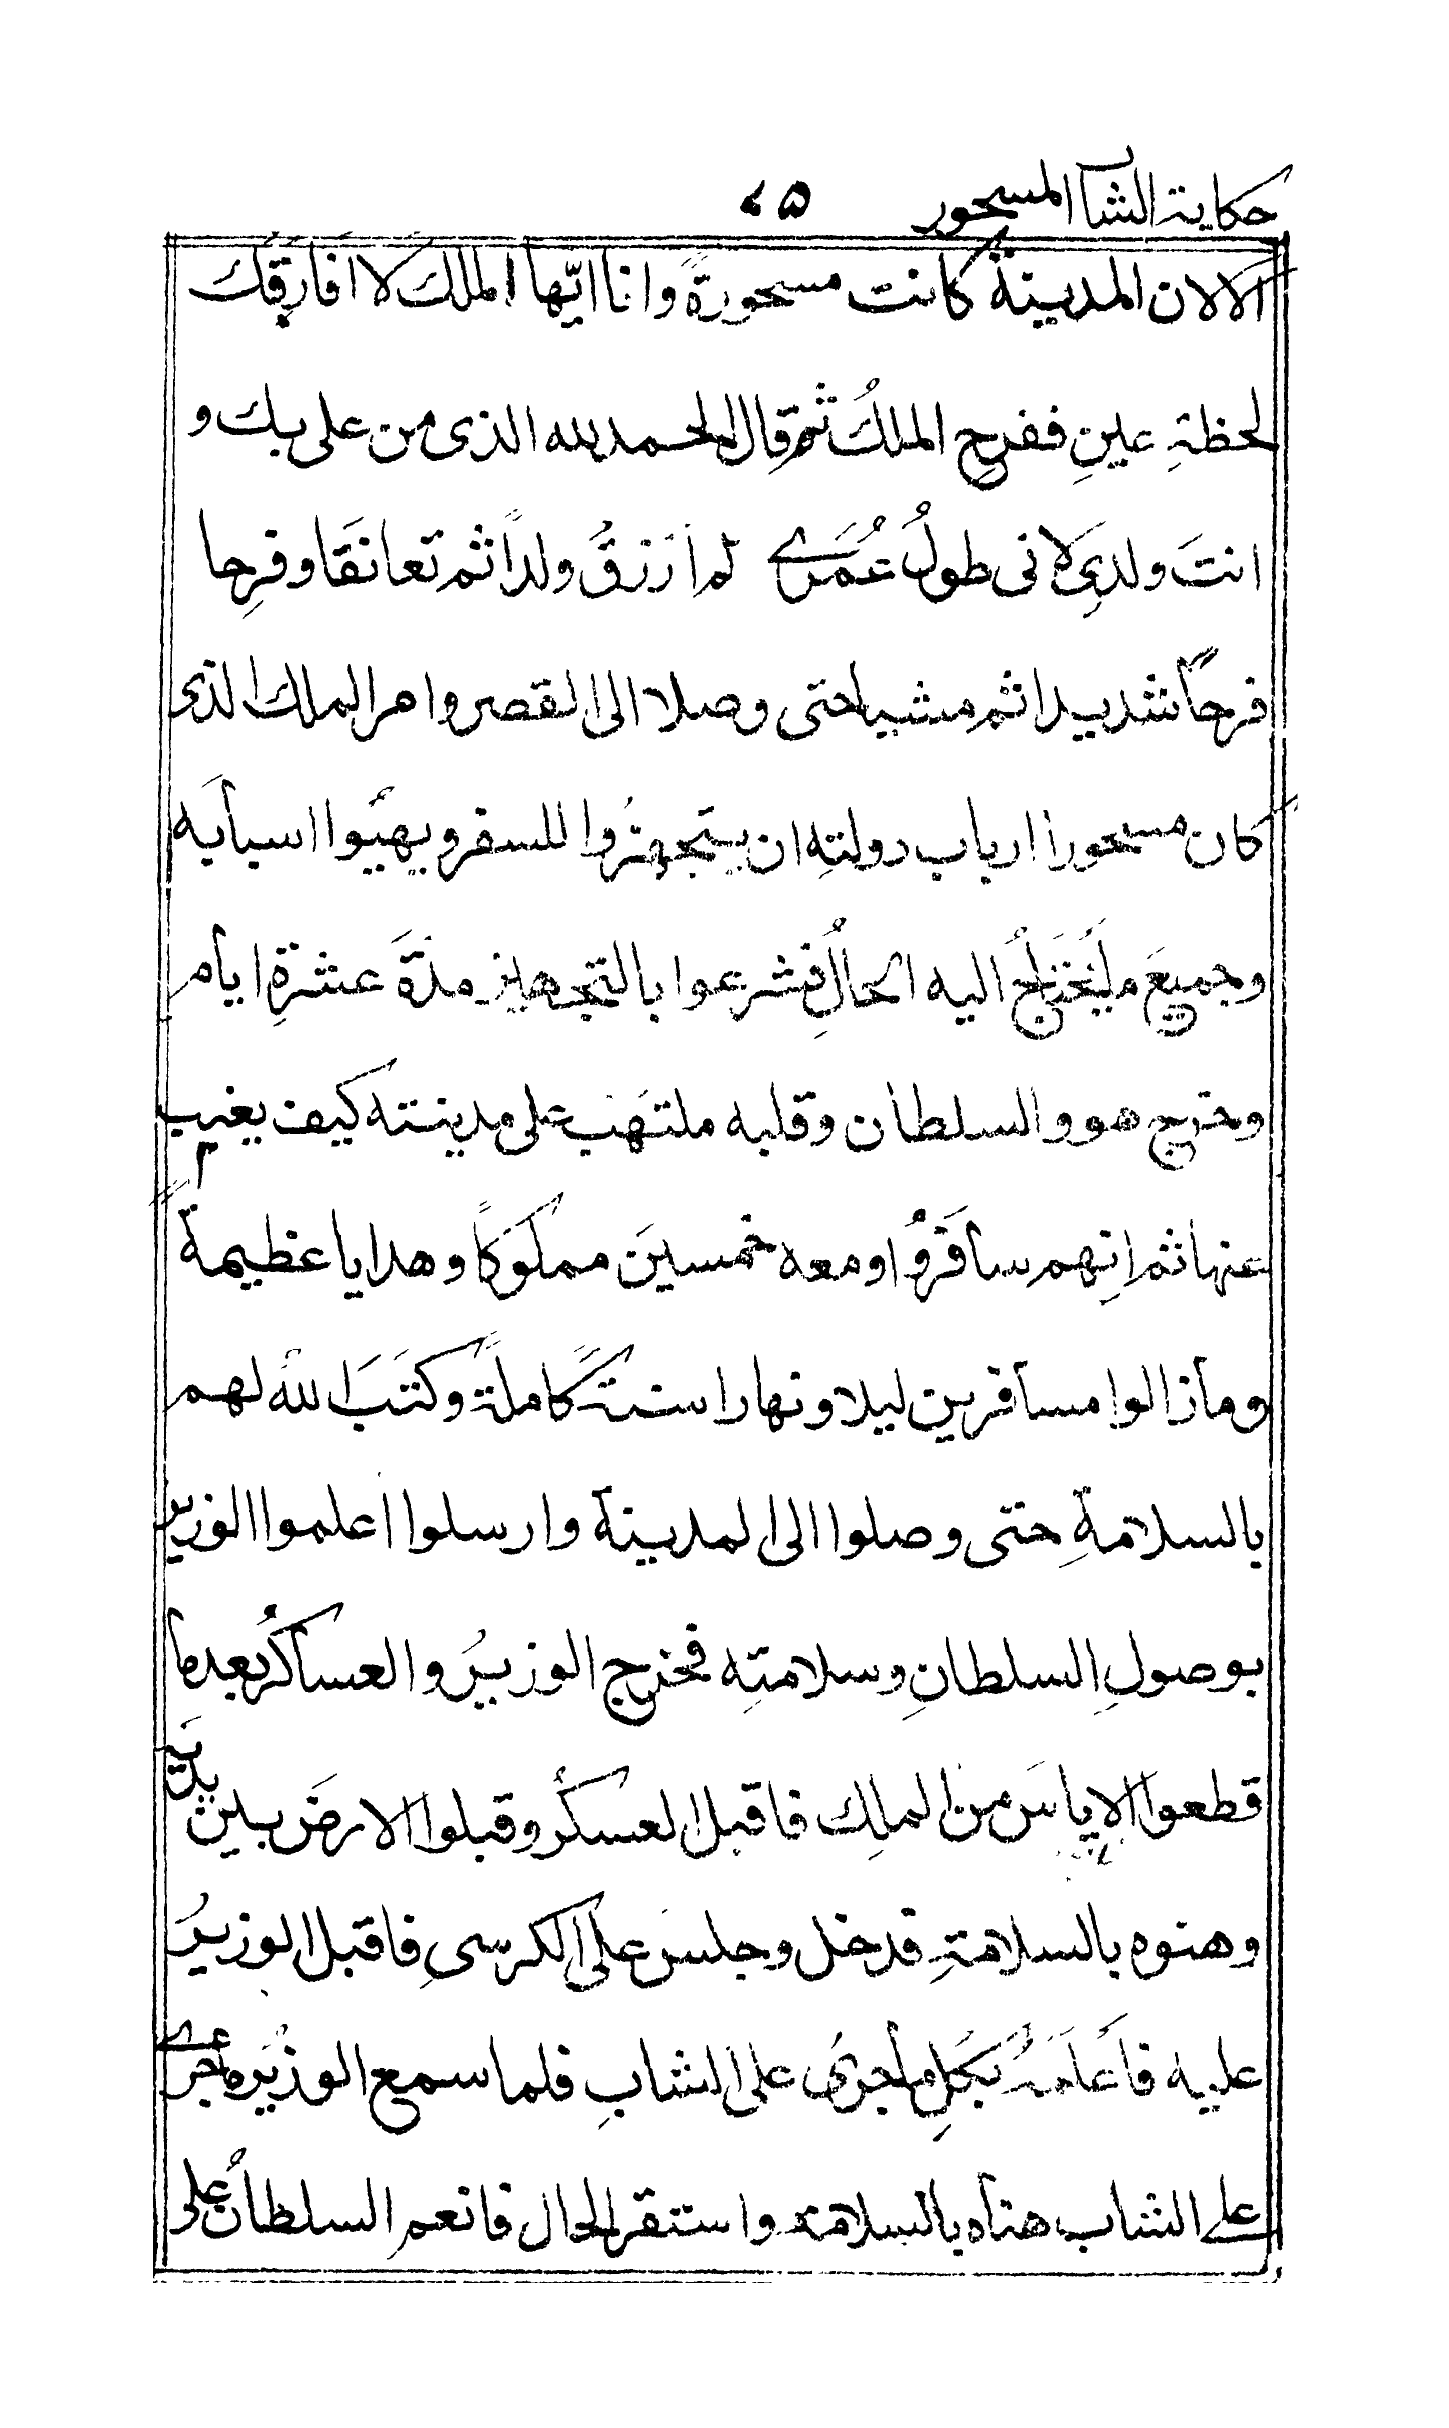 حكاية الشاب المسحور ٥٤
الا لان المدينة كانت مسحورةً وانا ايّها الملك لا افارِقُك
لحظةِ عينِ ففرح الملكُ ثم قال الحمد لله الذى من على بك و
انتَ ولدىِ لانى طولُ عُمَرے لم اَرزقُ ولداً ثم تعانقَا وفرِحا
فرحاً شديدا ثم مشيا حتى وصلا الى القصر وامر الملك الذى
كان مسحورا ارباب دولتِه ان يتجهزُوا للسفر ويهيّوا اسبابَه
وجميعَ ما يَحتاجُ اليه الحالُ فشرعوا بالتجهيز مدّةَ عشرةِ ايام
وخرج هو والسلطان وقلبه ملتهَب على مدينته كيف يغيب
عنها ثم اِنهم سافَرُوا ومعه خمسينَ مملوكاً وهدايا عظيمة
وما زالوا مسافرين ليلا ونهارا سنةً كاملةً وكتَبَ اللهُ لهم
بالسلامةِ حتى وصلوا الى المدينة وارسلوا اعلموا الوزير
بوصولِ السلطانِ وسلامتِه فخرج الوزيرُ والعساكرُ بعد ما
قطعوا الاِياسَ من الملِك فاقبل العسكرُ وقبلوا الارضَ بين يديه
وهنوه بالسلامةِ فدخل وجلسَ على الكرسىِ فاقبل الوزيرُ
عليه فاَعلَمَهُ بكَلِ ما جرىَ على الشابِ فلما سمع الوزيرُ ما جرےَ
علے الشاب هناه بالسلامة واستقر الحال فانعم السلطانُ على